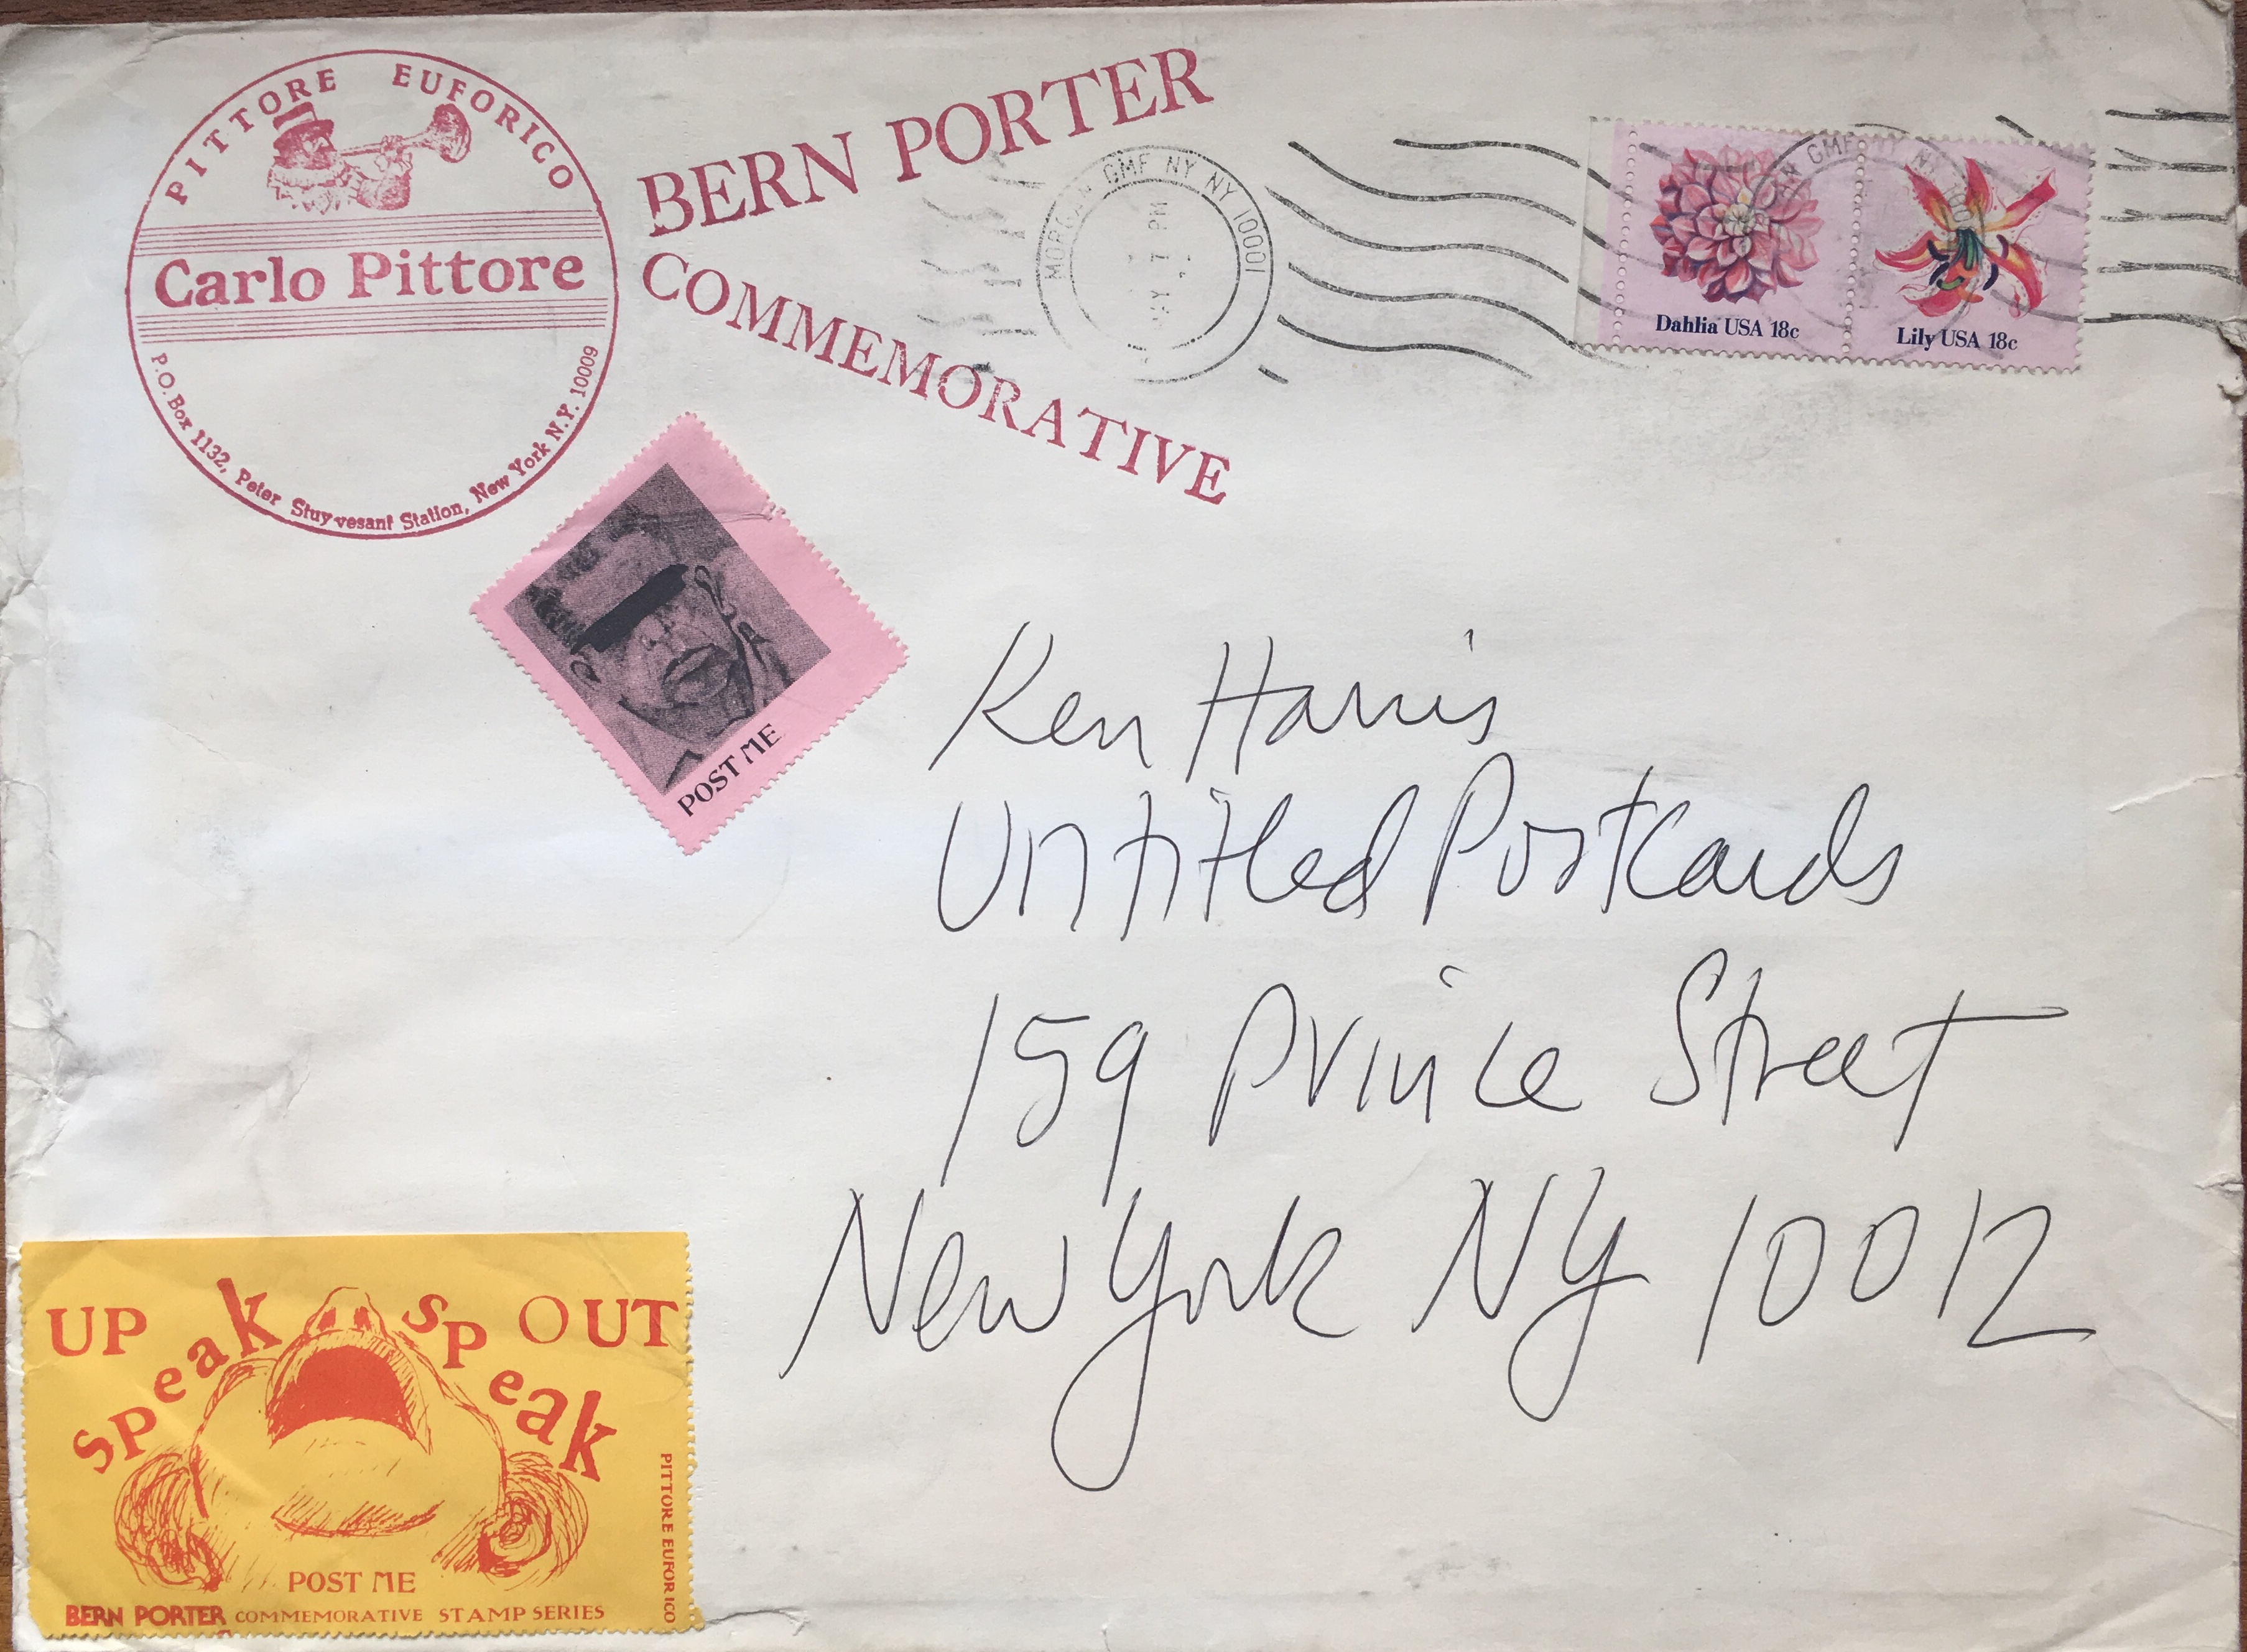 PITTORE EUFORICO
Carlo Pittore
P.O. Box 1132, Peter Stuyvesant Station, New York N.Y. 10009
BERN PORTER
COMMEMORATIVE
MORGAN GMF NY NY 10001
PM
GMF NY NY
Dahlia USA 18c
Lily USA 18c
POST ME
Ken Harris
Untitled Postcards
159 Prince Street
New York NY 10012
UP speak speak OUT
POST ME
BERN PORTER COMMEMORATIVE STAMP SERIES
PITTORE EUFORICO